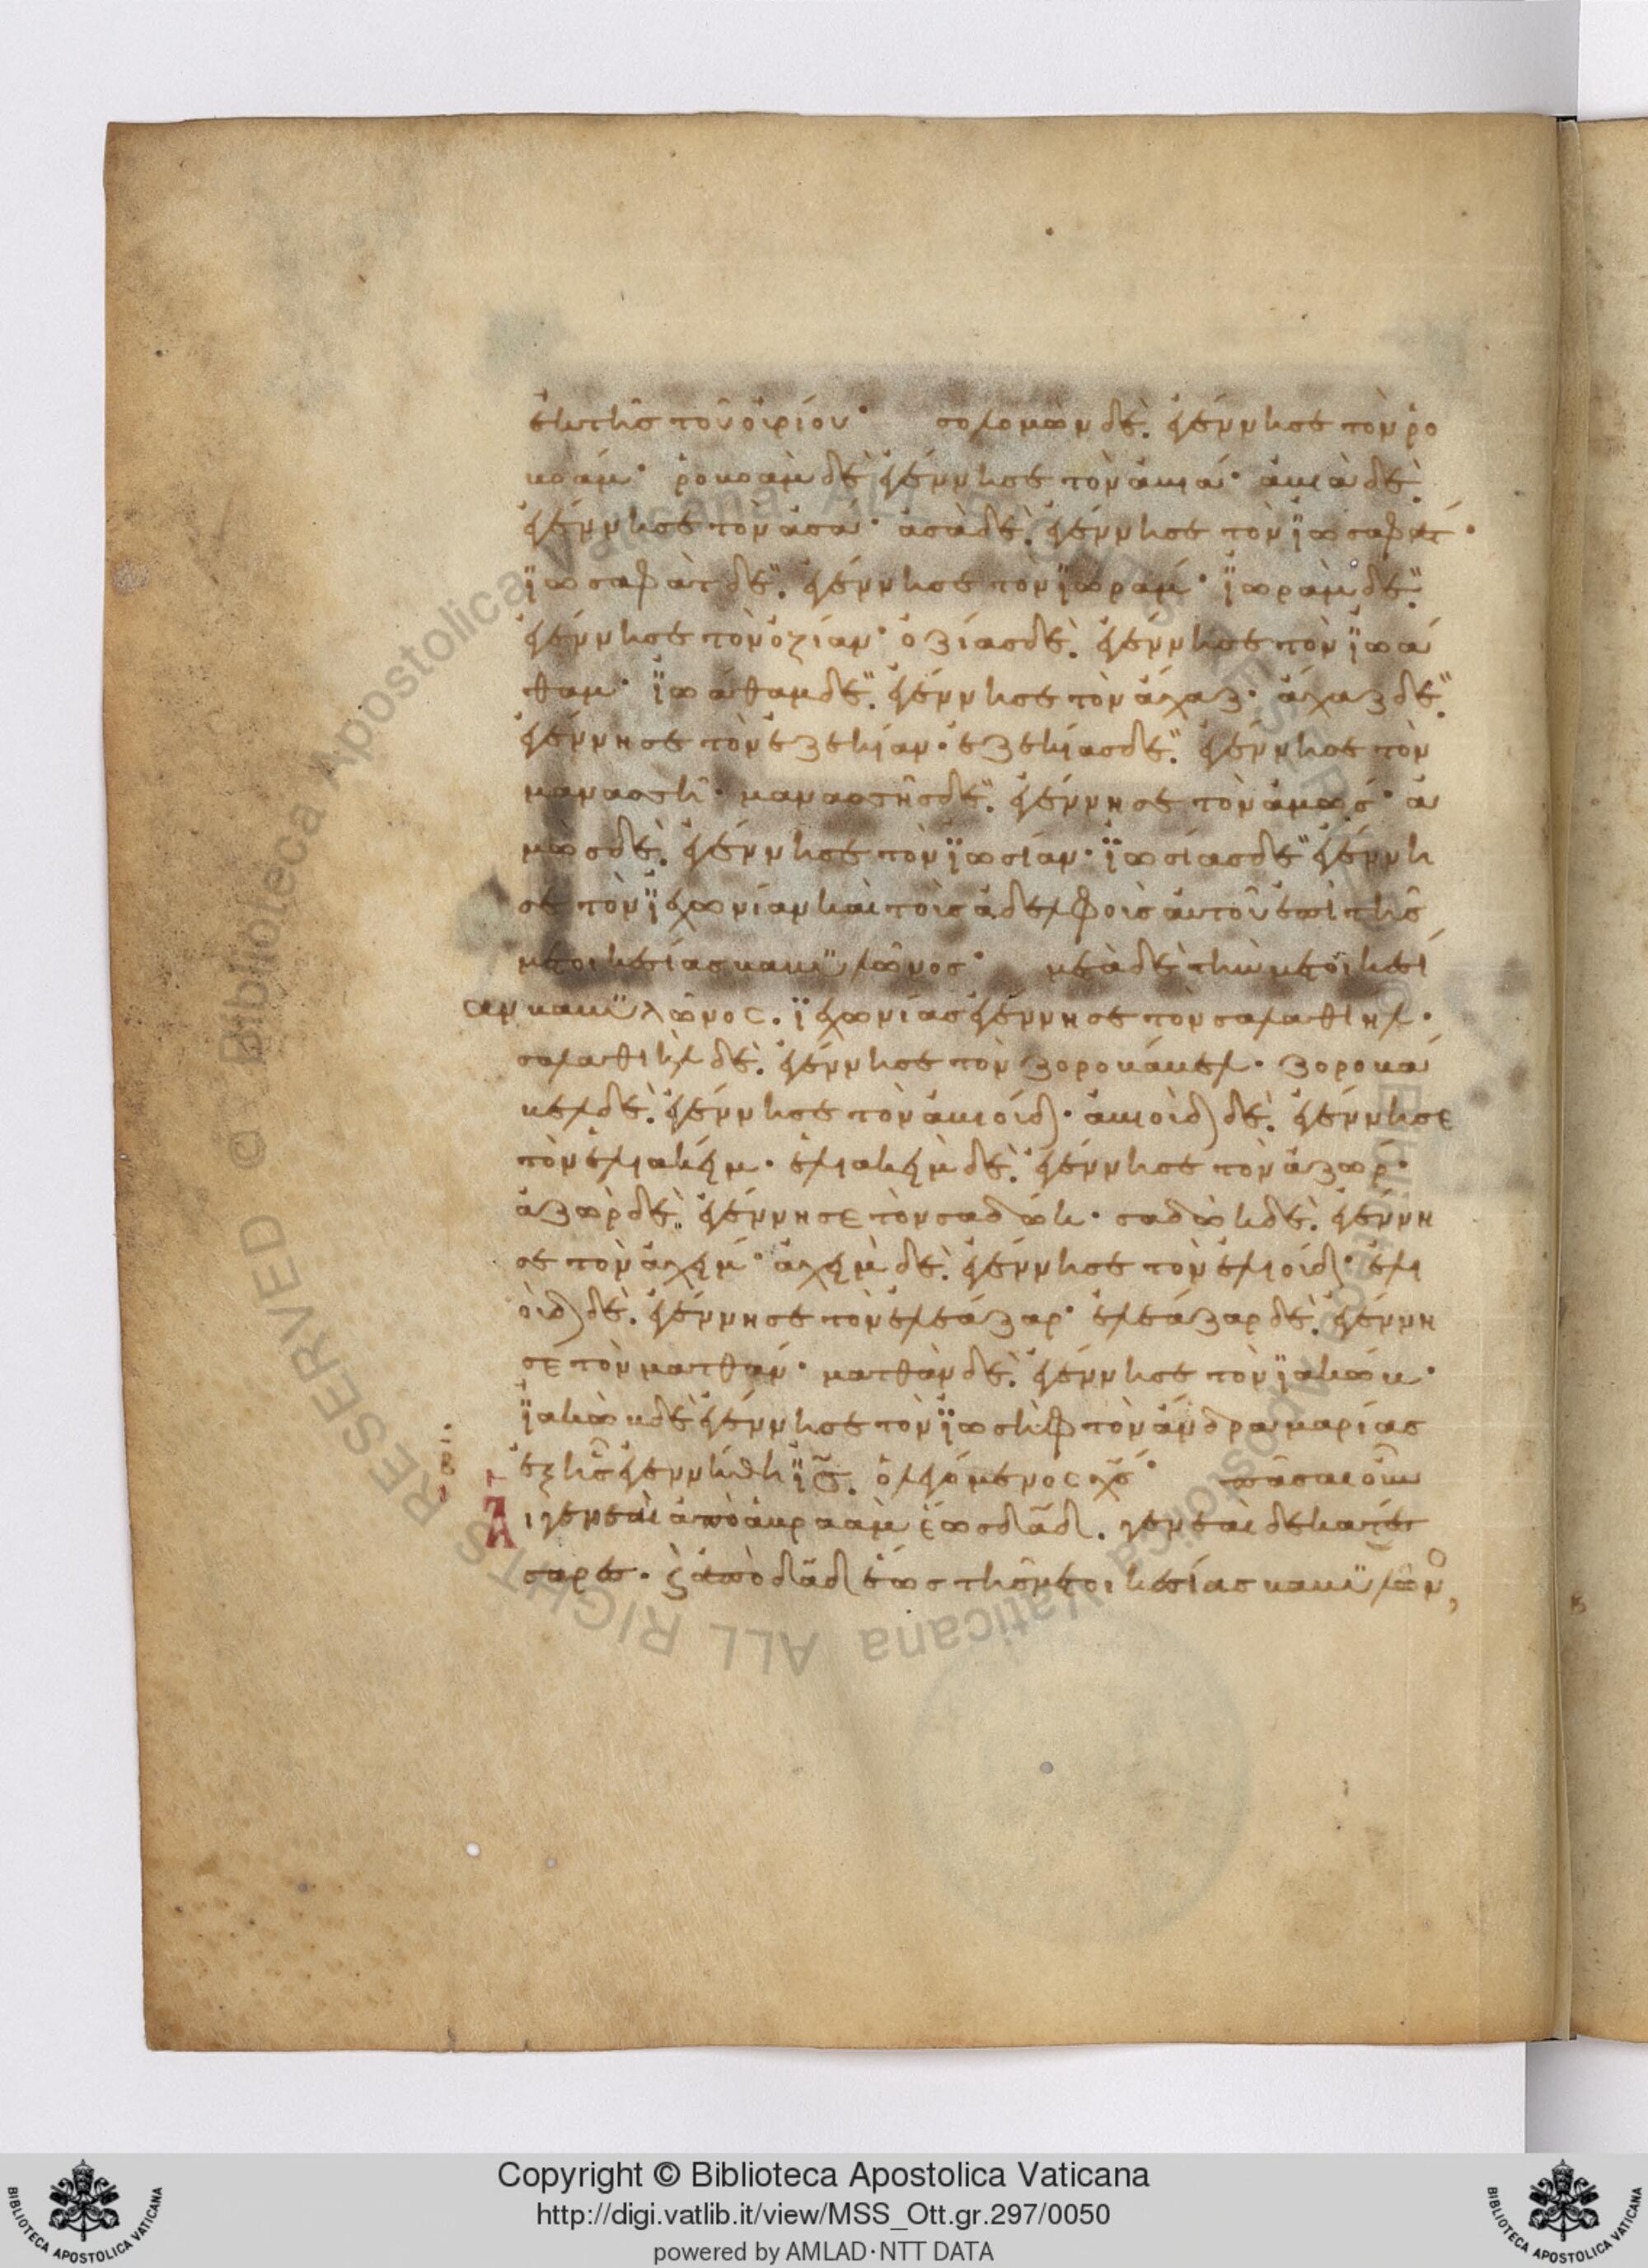 ἐκ τῆς τοῦ οὐρίου· σολομὼν δὲ. ἐγέννησε τὸν ῥο
βοάμ· ῥοβοὰμ δὲ ἐγέννησε τὸν ἀβιά· ἀβιὰ δὲ.
ἐγέννησε τὸν ἀσά· ἀσὰ δὲ. ἐγέννησε τὸν ἰωσαφάτ·
ἰωσαφὰτ δὲ. ἐγέννησε τὸν ἰωράμ· ἰωρὰμ δὲ.
ἐγέννησε τὸν ὀζίαν· ὀζίας δὲ. ἐγέννησε τὸν ἰωά
θαμ· ἰωάθαμ δὲ. ἐγέννησε τὸν ἄχαζ· ἄχαζ δὲ.
ἐγέννησε τὸν ἐζεκίαν· ἐζεκίας δὲ. ἐγέννησε τὸν
μανασσῆ· μανασσῆς δὲ. ἐγέννησε τὸν ἀμώς· ἀ
μὼς δὲ. ἐγέννησε τὸν ἰωσίαν· ἰωσίας δὲ ἐγέννη
σε τὸν ἰεχωνίαν καὶ τοὺς ἀδελφοὺς αὐτοῦ ἐπὶ τῆς
μετοικεσίας βαβυλῶνος· μετὰ δὲ τὴν μετοικεσί
αν βαβυλῶνος. ἰεχωνίας ἐγέννησε τὸν σαλαθιηλ·
σαλαθιὴλ δὲ. ἐγέννησε τὸν ζοροβάβελ· ζοροβά
βελ δὲ. ἐγέννησε τὸν ἀβιούδ· ἀβιοὺδ δὲ. ἐγέννησε
τὸν ἐλιακείμ· ἐλιακεὶμ δὲ. ἐγέννησε τὸν ἀζώρ·
ἀζὼρ δὲ. ἐγέννησε τὸν σαδώκ· σαδὼκ δὲ. ἐγέννη
σε τὸν ἀχείμ· ἀχεὶμ δὲ. ἐγέννησε τὸν ἐλιούδ· ἐλι
οὺδ δὲ. ἐγέννησε τὸν ἐλεάζαρ· ἐλεάζαρ δὲ. ἐγέννη
σε τὸν ματθάν· ματθὰν δὲ. ἐγέννησε τὸν ἰακώβ·
ἰακὼβ δὲ ἐγέννησε τὸν ἰωσὴφ τὸν ἄνδρα μαρίας
ἐξ ἧς ἐγεννήθη ἰς̅. ὁ λεγόμενος χς̅· πᾶσαι οὖν
Αἱ γενεαὶ ἀπὸ ἀβραὰμ ἕως δᾱδ. γενεαι δεκατέσ
σαρες· ϗ ἀπὸ δᾱδ ἕως τῆς μετοικεσίας βαβυλῶν,
Copyright © Biblioteca Apostolica Vaticana
http://digi.vatlib.it/view/MSS_Ott.gr.297/0050
powered by AMLAD·NTT DATA